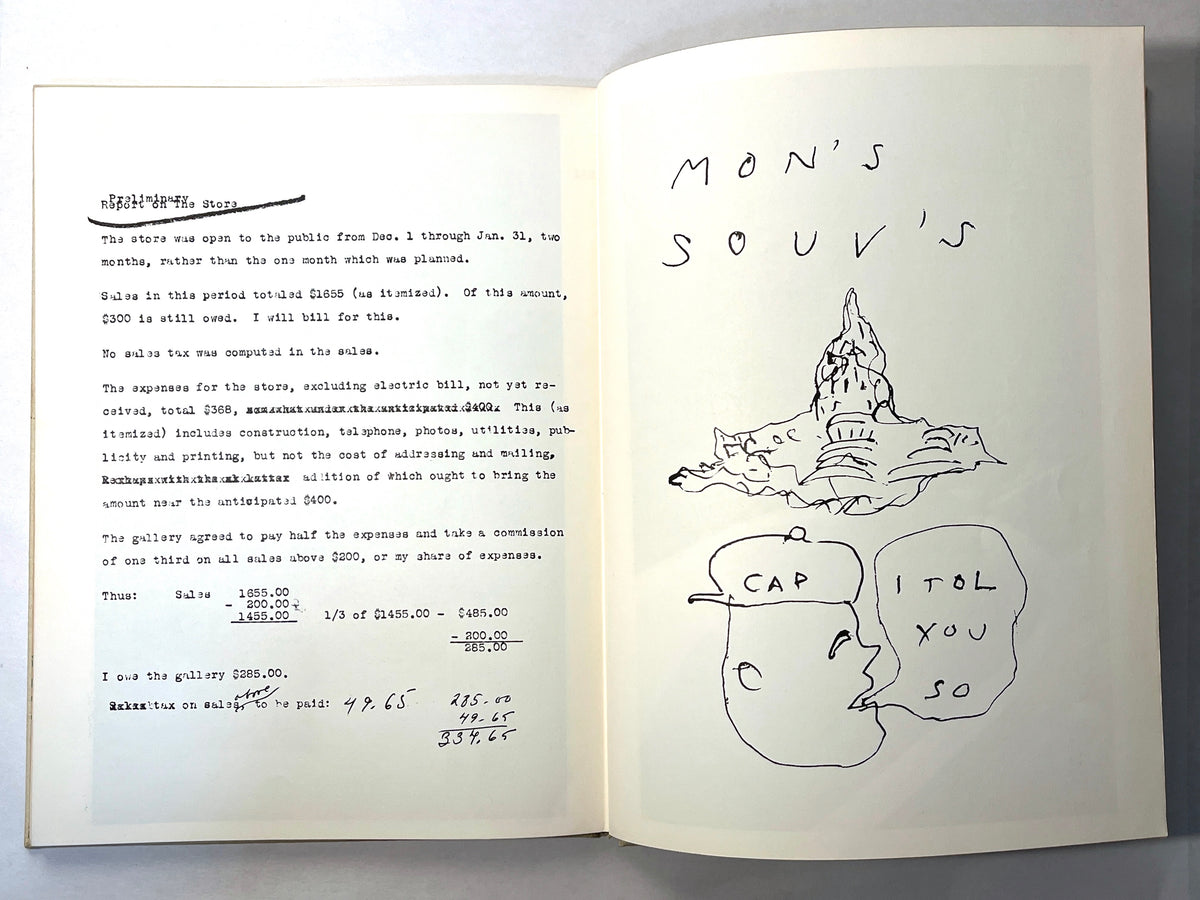 Preliminary
Report on The Store
The store was open to the public from Dec. 1 through Jan. 31, two
months, rather than the one month which was planned.
Sales in this period totaled $1655 (as itemized). Of this amount,
$300 is still owed. I will bill for this.
No sales tax was computed in the sales.
The expenses for the store, excluding electric bill, not yet re-
ceived, total $368, somewhat under the anticipated $400. This (as
itemized) includes construction, telephone, photos, utilities, pub-
licity and printing, but not the cost of addressing and mailing,
addition of which ought to bring the
amount near the anticipated $400.
The gallery agreed to pay half the expenses and take a commission
of one third on all sales above $200, or my share of expenses.
Thus: Sales 1655.00
- 200.00
1455.00 1/3 of $1455.00 - $485.00
- 200.00
285.00
I owe the gallery $285.00.
above
tax on sales to be paid: 49.65 285.00
49.65
334.65
MON'S
SOUV'S
CAP
I TOL
YOU
SO